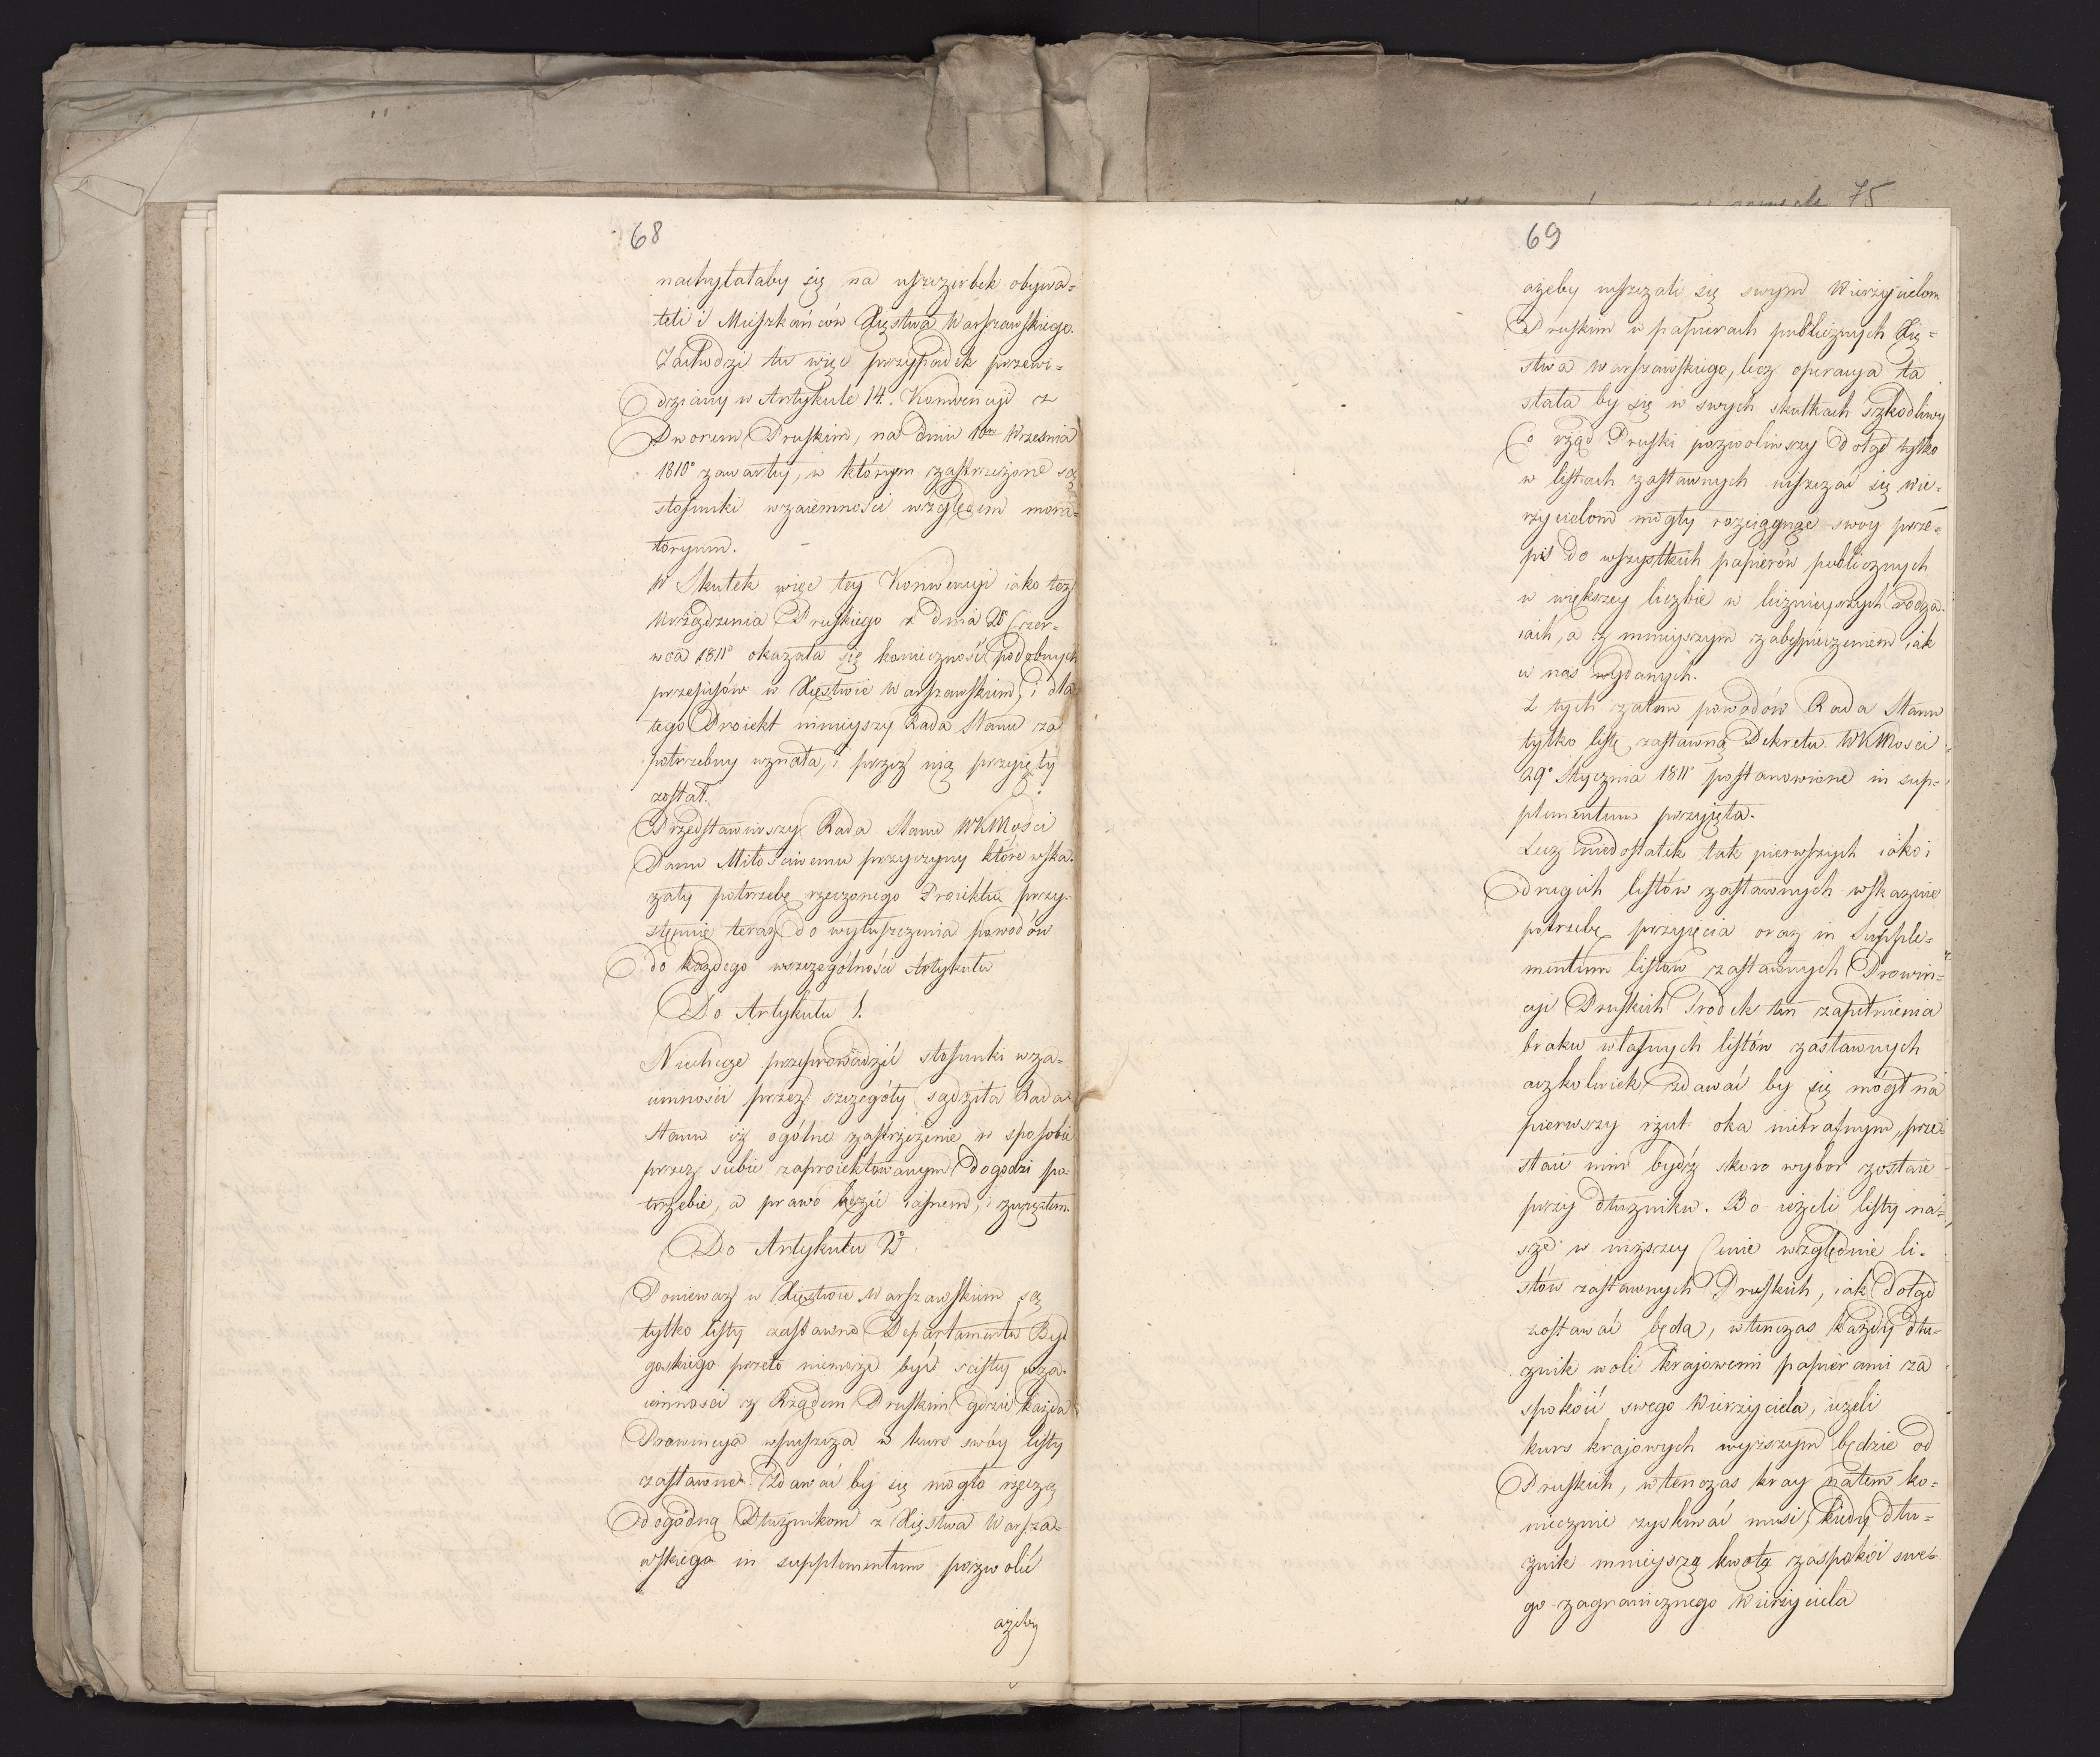 75
68
nachylałaby się na uszczerbek obywa=
teli i Mieszkańców Xięstwa Warszawskiego.
Zachodzi tu więc przypadek przewi=
dziany w Artykule 14. Konwencyi z
Dworem Pruskim, na dniu 10m Września
1810° zawartey, w którym zastrzeżone są
stosunki wzaiemności względem mora=
toryum.
W Skutek więc tey Konwencyi iako też
Urządzenia Pruskiego z dnia 20 Czer=
wca 1811° okazała się konieczność podobnych
przepisów w Xięstwie Warszawskiem, i dla
tego Proiekt ninieyszy Rada Stanu za
potrzebny uznała, i przez nią przyięty
został.
Przedstawiwszy Rada Stanu WKMości
Panu Miłościwemu przyczyny które wska=
zały potrzebę rzeczonego Proiektu przy=
stępuie teraz do wyłuszczenia powodów
do każdego wszczególności Artykułu
Do Artykułu 1.
Niechcąc przeprowadzić stosunki wza=
iemności przez szczegóły sądziła Rada
Stanu iż ogólne zastrzeżenie w sposobie
przez siebie zaproiektowanym dogodzi po=
trzebie, a prawo będzie iasnem, i zwięzłem.
Do Artykułu 2°
Ponieważ w Xięstwie Warszawskiem są
tylko listy zastawne Departamentu Byd
goskiego przeto niemoże być scisłey wza=
iemności z Rządem Pruskim gdzie każda
Prowincya wpuszcza w kurs swóy listy
zastawne. Zdawać by się mogło rzeczą
dogodną Dłużnikom z Xięstwa Warsza=
wskiego in supplementum pozwolić
ażeby
69
ażeby uiszczali się swym Wierzycielom
Pruskim w papierach publicznych Xię=
stwa Warszawskiego, lecz operacya ta
stała by się w swych skutkach szkodliwą
Co rząd Pruski pozwoliwszy dotąd tylko
w listach zastawnych uiszczać się wie=
rzycielom mógłby rozciągnąć swoy prze=
pis do wszystkich papierów publicznych
w większey liczbie w licznieyszych rodza=
iach, a z mnieyszym zabespieczeniem iak
u nas wydanych.
Z tych zatem powodów Rada Stanu
tylko listę zastawną Dekretu WKMości
29° Stycznia 1811° postanowione in sup=
plementum przyięła.
Lecz niedostatek tak pierwszych iako i
drugich listów zastawnych wskazuie
potrzebę przyięcia oraz in Supple=
mentum listów zastawnych Prowin=
cyi Pruskich Środek ten zapełnienia
braku własnych listów zastawnych
aczkolwiek zdawać by się mógł na
pierwszy rzut oka nietrafnym, prze=
staie nim bydź skoro wybor zostaie
przy dłużniku. Bo ieżeli listy na=
sze w niższey cenie względnie li=
stów zastawnych Pruskich, iak dotąd
zostawać będą, wtenczas każdy dłu=
żnik woli krajowemi papierami za
spokoić swego Wierzyciela, ieżeli
kurs krajowych wyższym będzie od
Pruskich, wtenczas kray zatem ko=
niecznie zyskiwać musi, kiedy dłu=
żnik mnieyszą kwotą zaspokoi swe=
go zagranicznego Wierzyciela